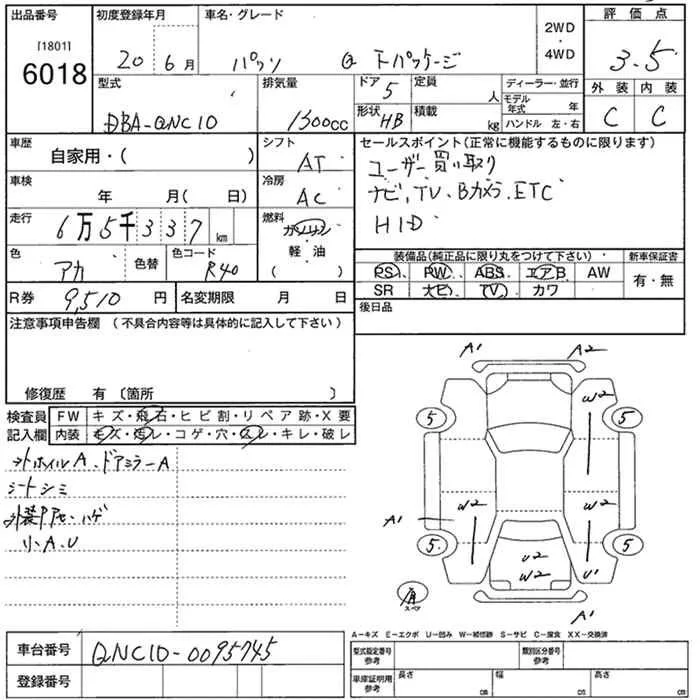 出品番号 初度登録年月 車名・グレード 2WD・4WD 評価点
[1801]
6018 20年6月 パッソ G Fパッケージ 3.5
型式 排気量 ドア 5 定員 人 ディーラー・並行 外装 内装
DBA-QNC10 1300cc 形状 HB 積載 kg モデル年式 年 ハンドル 左・右 C C
車歴 自家用・( ) シフト AT セールスポイント(正常に機能するものに限ります)
車検 年 月( 日) 冷房 AC ユーザー買い取り
走行 6万5千337km 燃料 ガソリン 軽・油 ( ) ナビ、TV、Bカメラ、ETC
HID
色 アカ 色替 色コード R40 装備品(純正品に限り丸をつけて下さい) 新車保証書
R券 9,510円 名変期限 月 日 PS PW ABS エアB AW 有・無
SR ナビ TV カワ
注意事項申告欄(不具合内容等は具体的に記入して下さい) 後日品
修復歴 有〔箇所 〕
検査員 FW キズ・飛石・ヒビ割・リペア跡・X要
記入欄 内装 キズ・汚レ・コゲ・穴・スレ・キレ・破レ
ホイルA、ドアミラーA
シートシミ
ハゲ
小A、U
A1 A2
W2
5 5
W2 W2
A1
5 5
U2
W2 U1
スペア
A1
A-キズ E-エクボ U-凹み W-補修跡 S-サビ C-腐食 XX-交換済
車台番号 QNC10-0095745 型式指定番号 参考 類別区分番号 参考
登録番号 車庫証明用 参考 長さ cm 幅 cm 高さ cm